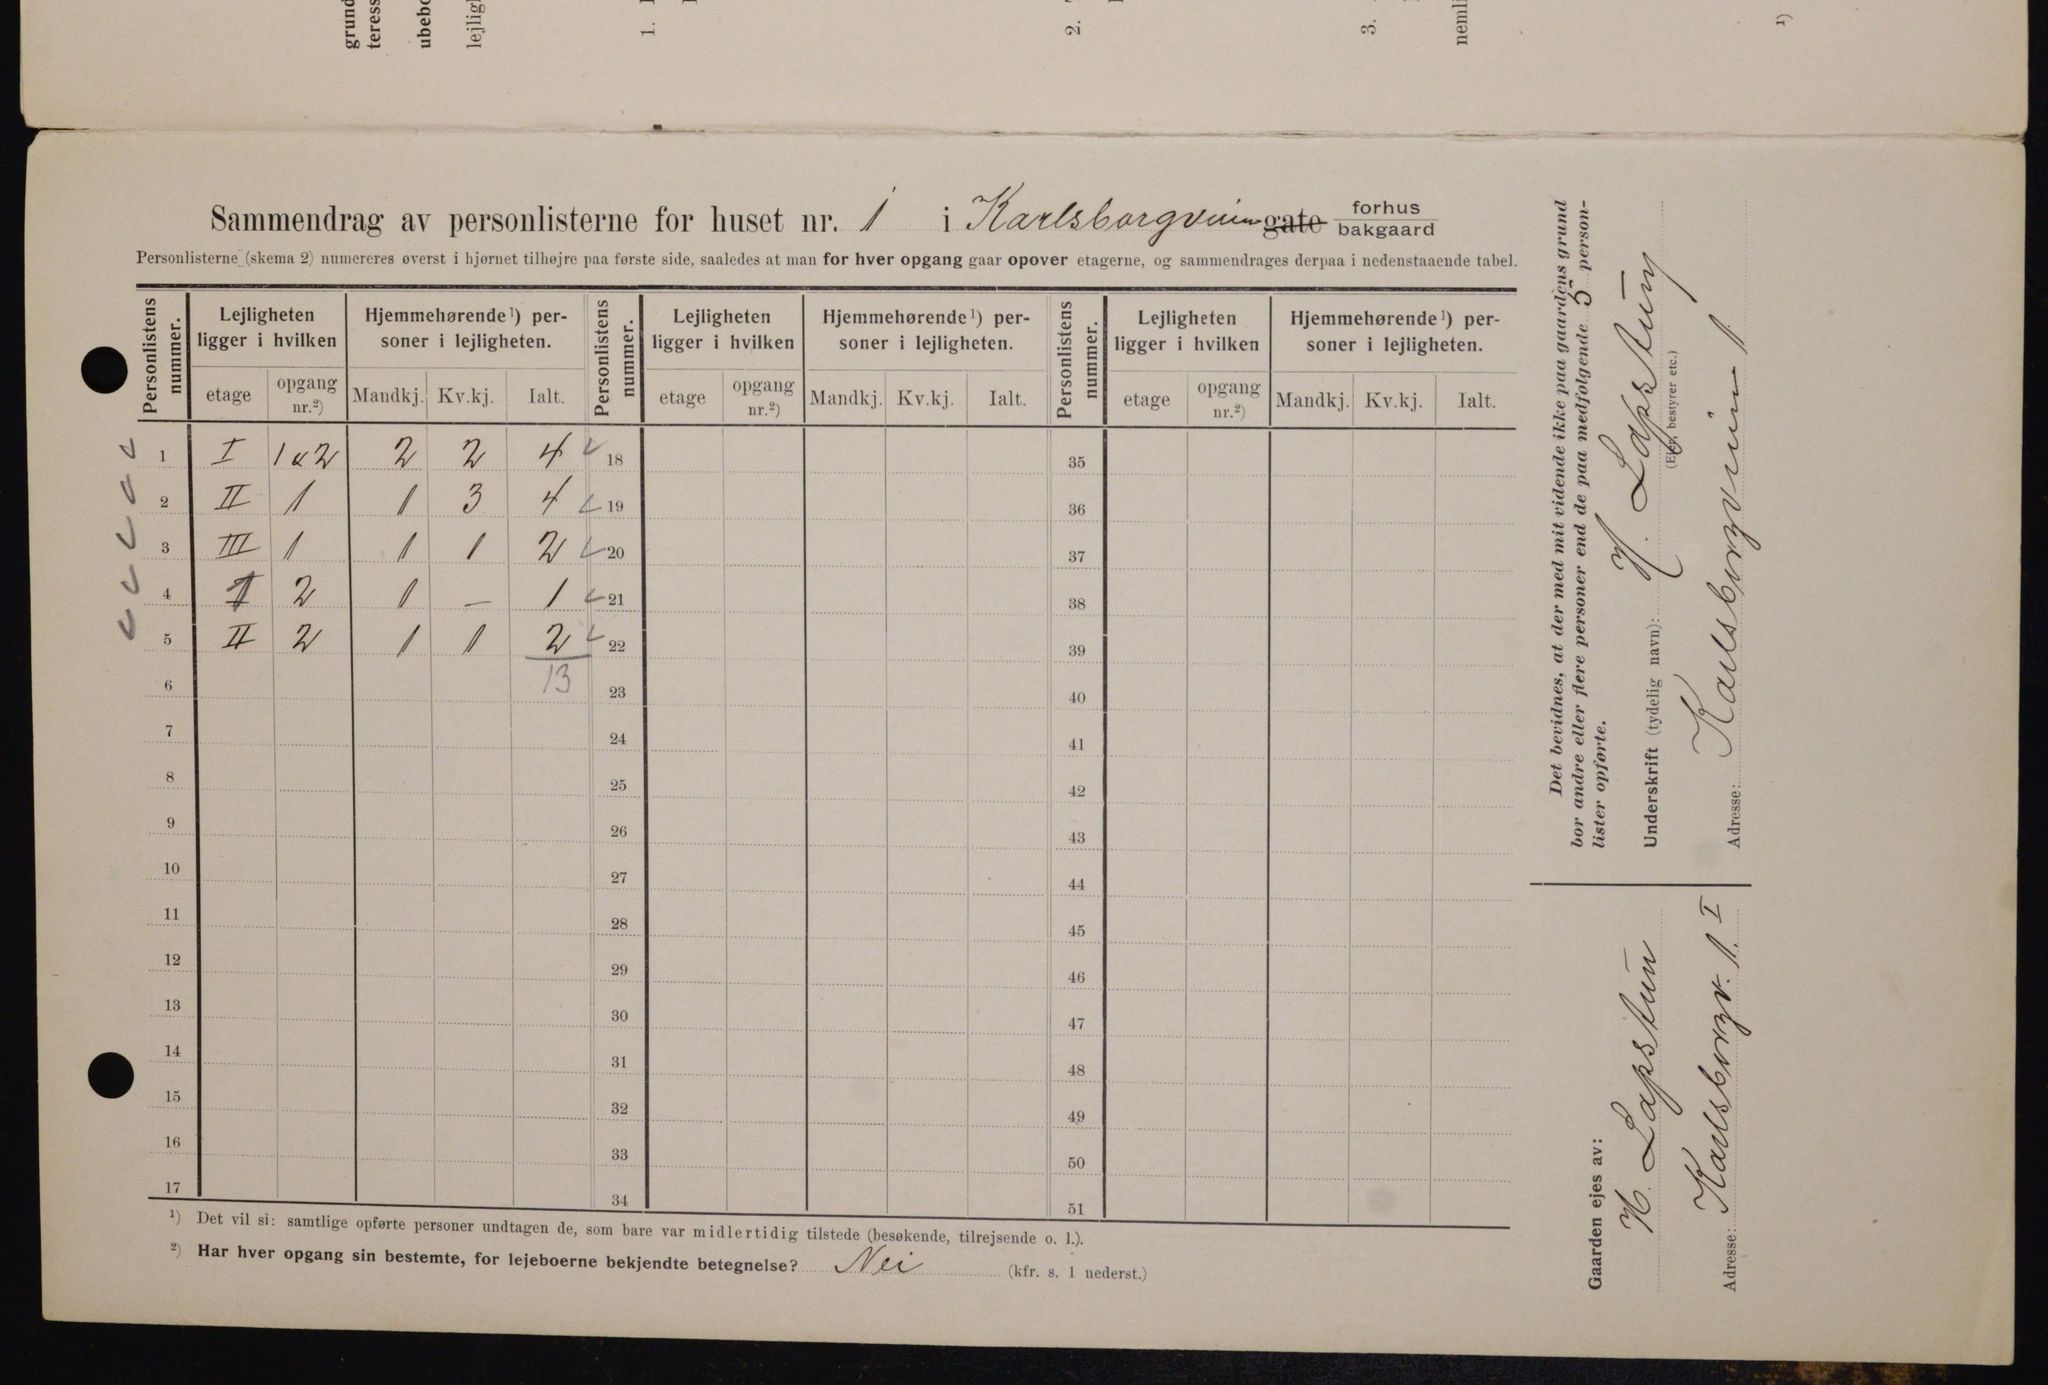 grund
teress
ubebo
lejligh
1.
2.
3.
nemli
¹)
Sammendrag av personlisterne for huset nr. 1 i Karlsborgveien gate forhus
bakgaard
Personlisterne (skema 2) numereres øverst i hjørnet tilhøjre paa første side, saaledes at man for hver opgang gaar opover etagerne, og sammendrages derpaa i nedenstaaende tabel.
Personlistens nummer. Lejligheten ligger i hvilken Hjemmehørende¹) personer i lejligheten. Personlistens nummer. Lejligheten ligger i hvilken Hjemmehørende¹) personer i lejligheten. Personlistens nummer. Lejligheten ligger i hvilken Hjemmehørende¹) personer i lejligheten.
etage opgang nr.²) Mandkj. Kv.kj. Ialt. etage opgang nr.²) Mandkj. Kv.kj. Ialt. etage opgang nr.²) Mandkj. Kv.kj. Ialt.
1 I 1 & 2 2 2 4 18 35
2 II 1 1 3 4 19 36
3 III 1 1 1 2 20 37
4 I 2 1 – 1 21 38
5 II 2 1 1 2 22 39
6 13 23 40
7 24 41
8 25 42
9 26 43
10 27 44
11 28 45
12 29 46
13 30 47
14 31 48
15 32 49
16 33 50
17 34 51
¹) Det vil si: samtlige opførte personer undtagen de, som bare var midlertidig tilstede (besøkende, tilrejsende o. l.).
²) Har hver opgang sin bestemte, for lejeboerne bekjendte betegnelse? Nei (kfr. s. 1 nederst.)
Det bevidnes, at der med mit vidende ikke paa gaardens grund
bor andre eller flere personer end de paa medfølgende 5 person-
lister opførte.
Underskrift (tydelig navn): H. Lapstun
(Eier, bestyrer etc.)
Adresse: Karlsborgveien 1
Gaarden ejes av:
H. Lapstun
Adresse: Karlsborgv. 1. I